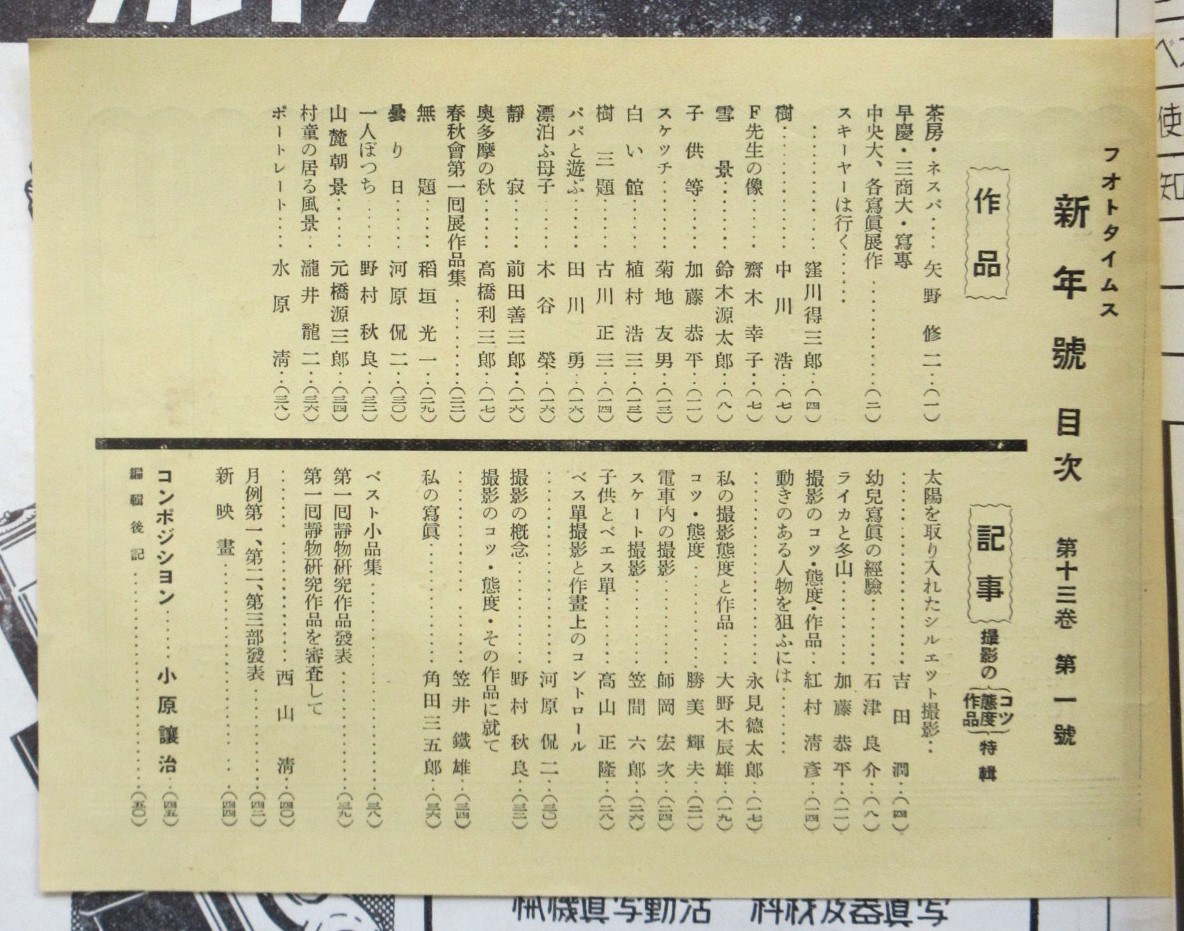 フオトタイムス
新年號目次 第十三卷 第一號
作品
茶房・ネスパ‥‥矢野修二‥(一)
早慶・三商大・寫專
中央大、各寫眞展作‥‥‥‥‥(二)
スキーヤーは行く‥‥‥
‥‥‥‥‥‥窪川得三郎‥(四)
樹‥‥‥‥‥‥中川浩‥(七)
F先生の像‥‥‥齋木幸子‥(七)
雪景‥‥‥‥鈴木源太郎‥(八)
子供等‥‥‥加藤恭平‥(一一)
スケッチ‥‥‥菊地友男‥(一三)
白い館‥‥‥植村浩三‥(一三)
樹三題‥‥‥古川正三‥(一四)
パパと遊ぶ‥‥‥田川勇‥(一六)
漂泊ふ母子‥‥‥木谷榮‥(一六)
靜寂‥‥‥前田善三郎‥(一六)
奧多摩の秋‥‥‥高橋利三郎‥(一七)
春秋會第一囘展作品集‥‥‥‥(二二)
無題‥‥‥稻垣光一‥(二九)
曇り日‥‥‥河原侃二‥(三〇)
一人ぼつち‥‥‥野村秋良‥(三二)
山麓朝景‥‥‥元橋源三郎‥(三四)
村童の居る風景‥瀧井龍二‥(三六)
ポートレート‥‥‥水原淸‥(三八)
記事 撮影の コツ 態度 作品 特輯
太陽を取り入れたシルエット撮影‥
‥‥‥‥‥‥‥‥吉田潤‥(四)
幼兒寫眞の經驗‥‥‥石津良介‥(八)
ライカと冬山‥‥‥‥加藤恭平‥(一一)
撮影のコツ・態度・作品‥紅村淸彥‥(一四)
動きのある人物を狙ふには‥‥‥
‥‥‥‥‥‥‥‥永見德太郎‥(一七)
私の撮影態度と作品‥‥大野木辰雄‥(一九)
コツ・態度‥‥‥‥‥勝美輝夫‥(二一)
電車内の撮影‥‥‥‥師岡宏次‥(二四)
スケート撮影‥‥‥‥笠間六郎‥(二六)
子供とベエス單‥‥‥高山正隆‥(二八)
ベス單撮影と作畫上のコントロール
‥‥‥‥‥‥‥‥河原侃二‥(三〇)
撮影の槪念‥‥‥‥‥野村秋良‥(三二)
撮影のコツ・態度・その作品に就て
‥‥‥‥‥‥‥‥笠井鐵雄‥(三四)
私の寫眞‥‥‥‥‥‥角田三五郎‥(三六)
ベスト小品集‥‥‥‥‥‥‥‥‥(三八)
第一囘靜物硏究作品發表‥‥‥‥‥(三九)
第一囘靜物硏究作品を審査して
‥‥‥‥‥‥‥‥西山淸‥(四〇)
月例第一、第二、第三部發表‥‥‥‥(四二)
新映畫‥‥‥‥‥‥‥‥‥‥(四四)
コンポジシヨン‥‥‥小原讓治‥(四五)
編輯後記‥‥‥‥‥‥‥‥‥‥(五〇)
使
知
写真器及材料 活動写真機械